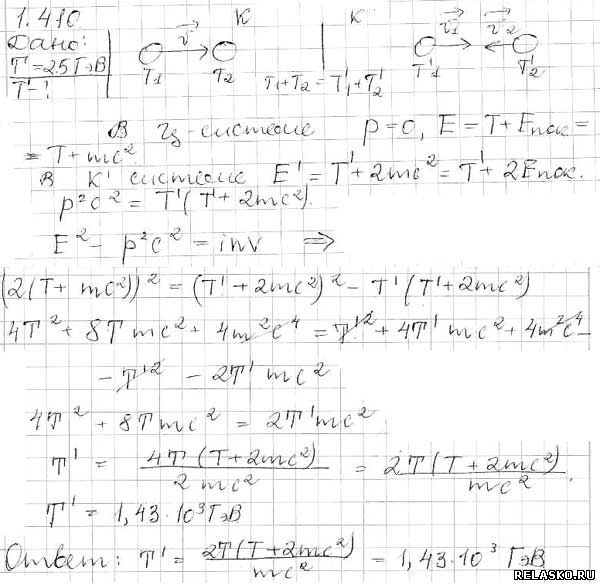 1.410
Дано:
T' = 25 ГэВ
T' - !
K
v
T1 T2
K
v1 v2
T'1 T'2
T1+T2 = T'1+T'2
В Ц-системе p=0, E=T+Eпок=
= T+mc²
В K' системе E' = T'+2mc² = T'+2Eпок.
p²c² = T'(T'+2mc²).
E² - p²c² = inv ⇒
(2(T+mc²))² = (T'+2mc²)² - T'(T'+2mc²)
4T² + 8Tmc² + 4m²c⁴ = T'² + 4T'mc² + 4m²c⁴ -
- T'² - 2T'mc²
4T² + 8Tmc² = 2T'mc²
T' = 4T(T+2mc²) / 2mc² = 2T(T+2mc²) / mc².
T' = 1,43·10³ ГэВ
Ответ: T' = 2T(T+2mc²) / mc² = 1,43·10³ ГэВ
RELASKO.RU